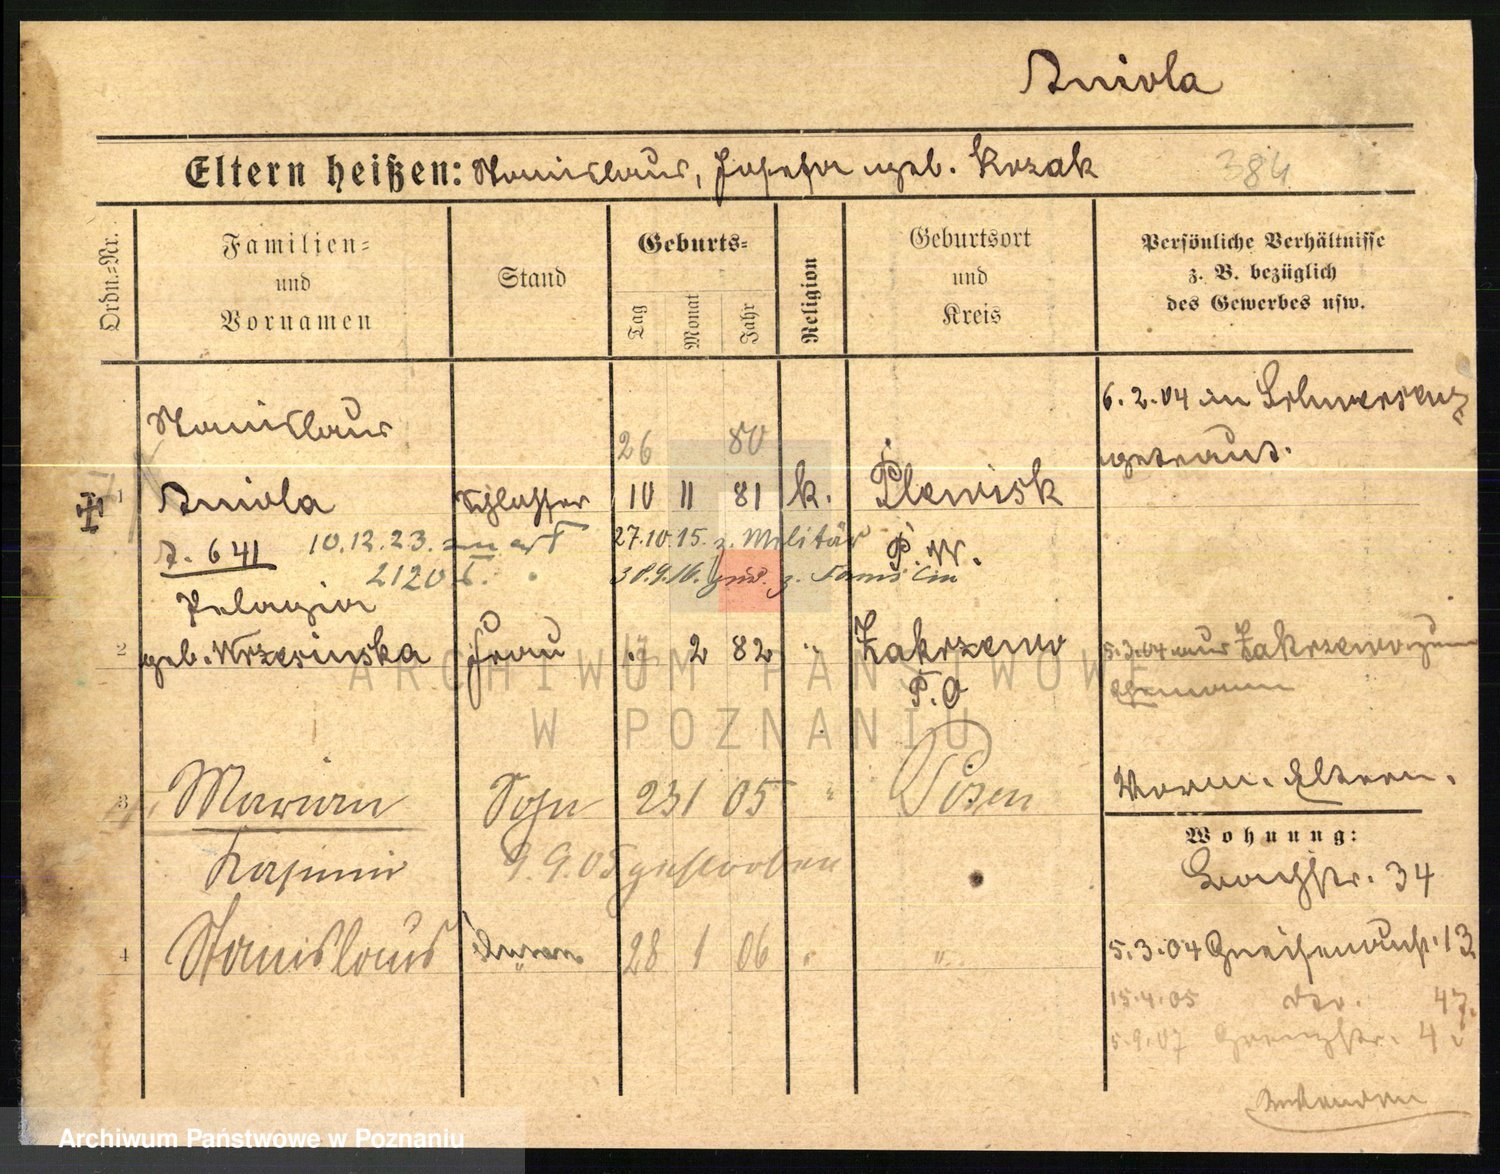 Aniola
Eltern heißen: Stanislaus, Josefa geb. Kozak
384
Ordn.=Nr.
Familien=
und
Vornamen
Stand
Geburts=
Tag
Monat
Jahr
Religion
Geburtsort
und
Kreis
Persönliche Verhältnisse
z. B. bezüglich
des Gewerbes usw.
6.2.04 in Schwersenz
getraut.
Stanislaus
26 80
1 Aniola Schlosser 10 11 81 k. Plewisk
P. W.
A. 641 10.12.23.
2120
27.10.15. z. Militär
30.9.16. zur. z. Familie
Pelagia
2 geb. Wrzesinska Frau 2 82 " Zakrzewo
P. O
5.3.04 aus Zakrzewo zum
Ehemann
3 Marian Sohn 23 1 05 " Posen
Kasimir 9.9.05 gestorben
4 Stanislaus 28 1 06 " "
Vorm. Eltern.
Wohnung:
34
5.3.04 Gneisenaustr. 13
15.4.05 47.
5.9.07 Grenzstr. 4
ARCHIWUM PAŃSTWOWE
W POZNANIU
Archiwum Państwowe w Poznaniu